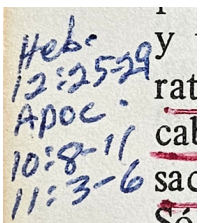 Heb.
12:25-29
Apoc.
10:8-11
11:3-6
y
rat
cab
sac
Só